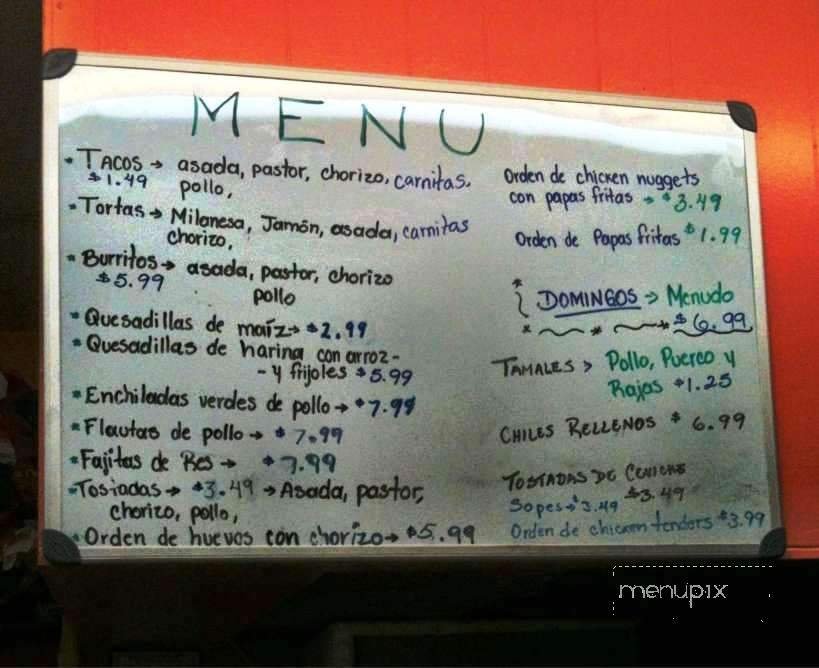 MENU
• TACOS → asada, pastor, chorizo, carnitas.
$1.49 pollo,
• Tortas → Milanesa, Jamón, asada, carnitas
chorizo,
• Burritos → asada, pastor, chorizo
$5.99 pollo
• Quesadillas de maíz → $2.99
• Quesadillas de harina con arroz -
- y frijoles $5.99
• Enchiladas verdes de pollo → $7.99
• Flautas de pollo → $7.99
• Fajitas de Res → $7.99
• Tostadas → $3.49 → Asada, pastor,
chorizo, pollo,
• Orden de huevos con chorizo → $5.99
Orden de chicken nuggets
con papas fritas → $3.49
Orden de Papas fritas $1.99
DOMINGOS → Menudo
$6.99
TAMALES > Pollo, Puerco y
Rajas $1.25
CHILES RELLENOS $6.99
TOSTADAS DE CEVICHE
$3.49
Sopes → $3.49
Orden de chicken tenders $3.99
menupix